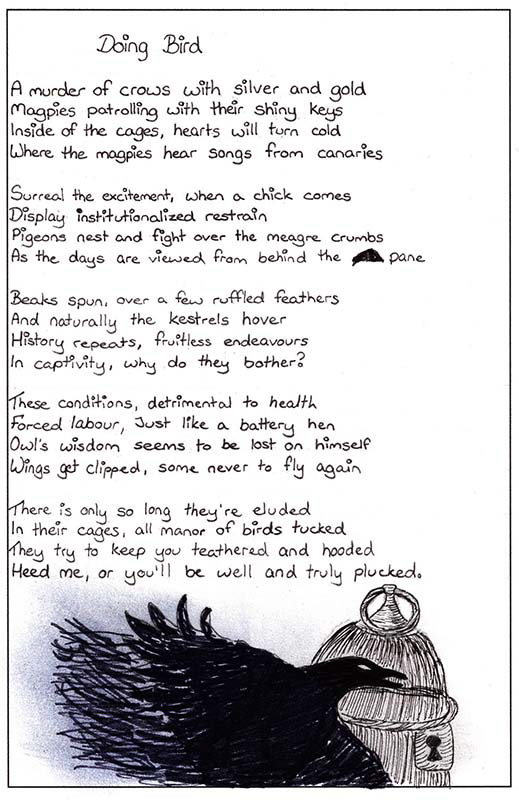 Doing Bird
A murder of crows with silver and gold
Magpies patrolling with their shiny keys
Inside of the cages, hearts will turn cold
Where the magpies hear songs from canaries
Surreal the excitement, when a chick comes
Display institutionalized restrain
Pigeons nest and fight over the meagre crumbs
As the days are viewed from behind the pane
Beaks spun, over a few ruffled feathers
And naturally the kestrels hover
History repeats, fruitless endeavours
In captivity, why do they bother?
These conditions, detrimental to health
Forced labour, Just like a battery hen
Owl's wisdom seems to be lost on himself
Wings get clipped, some never to fly again
There is only so long they're eluded
In their cages, all manor of birds tucked
They try to keep you teathered and hooded
Heed me, or you'll be well and truly plucked.